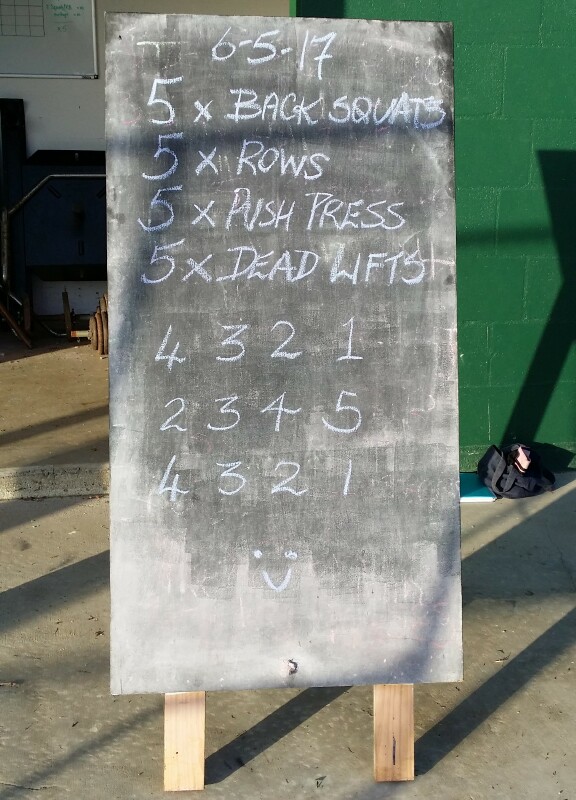 6-5-17
5 x BACK SQUATS
5 x ROWS
5 x PUSH PRESS
5 x DEAD LIFTS
4 3 2 1
2 3 4 5
4 3 2 1